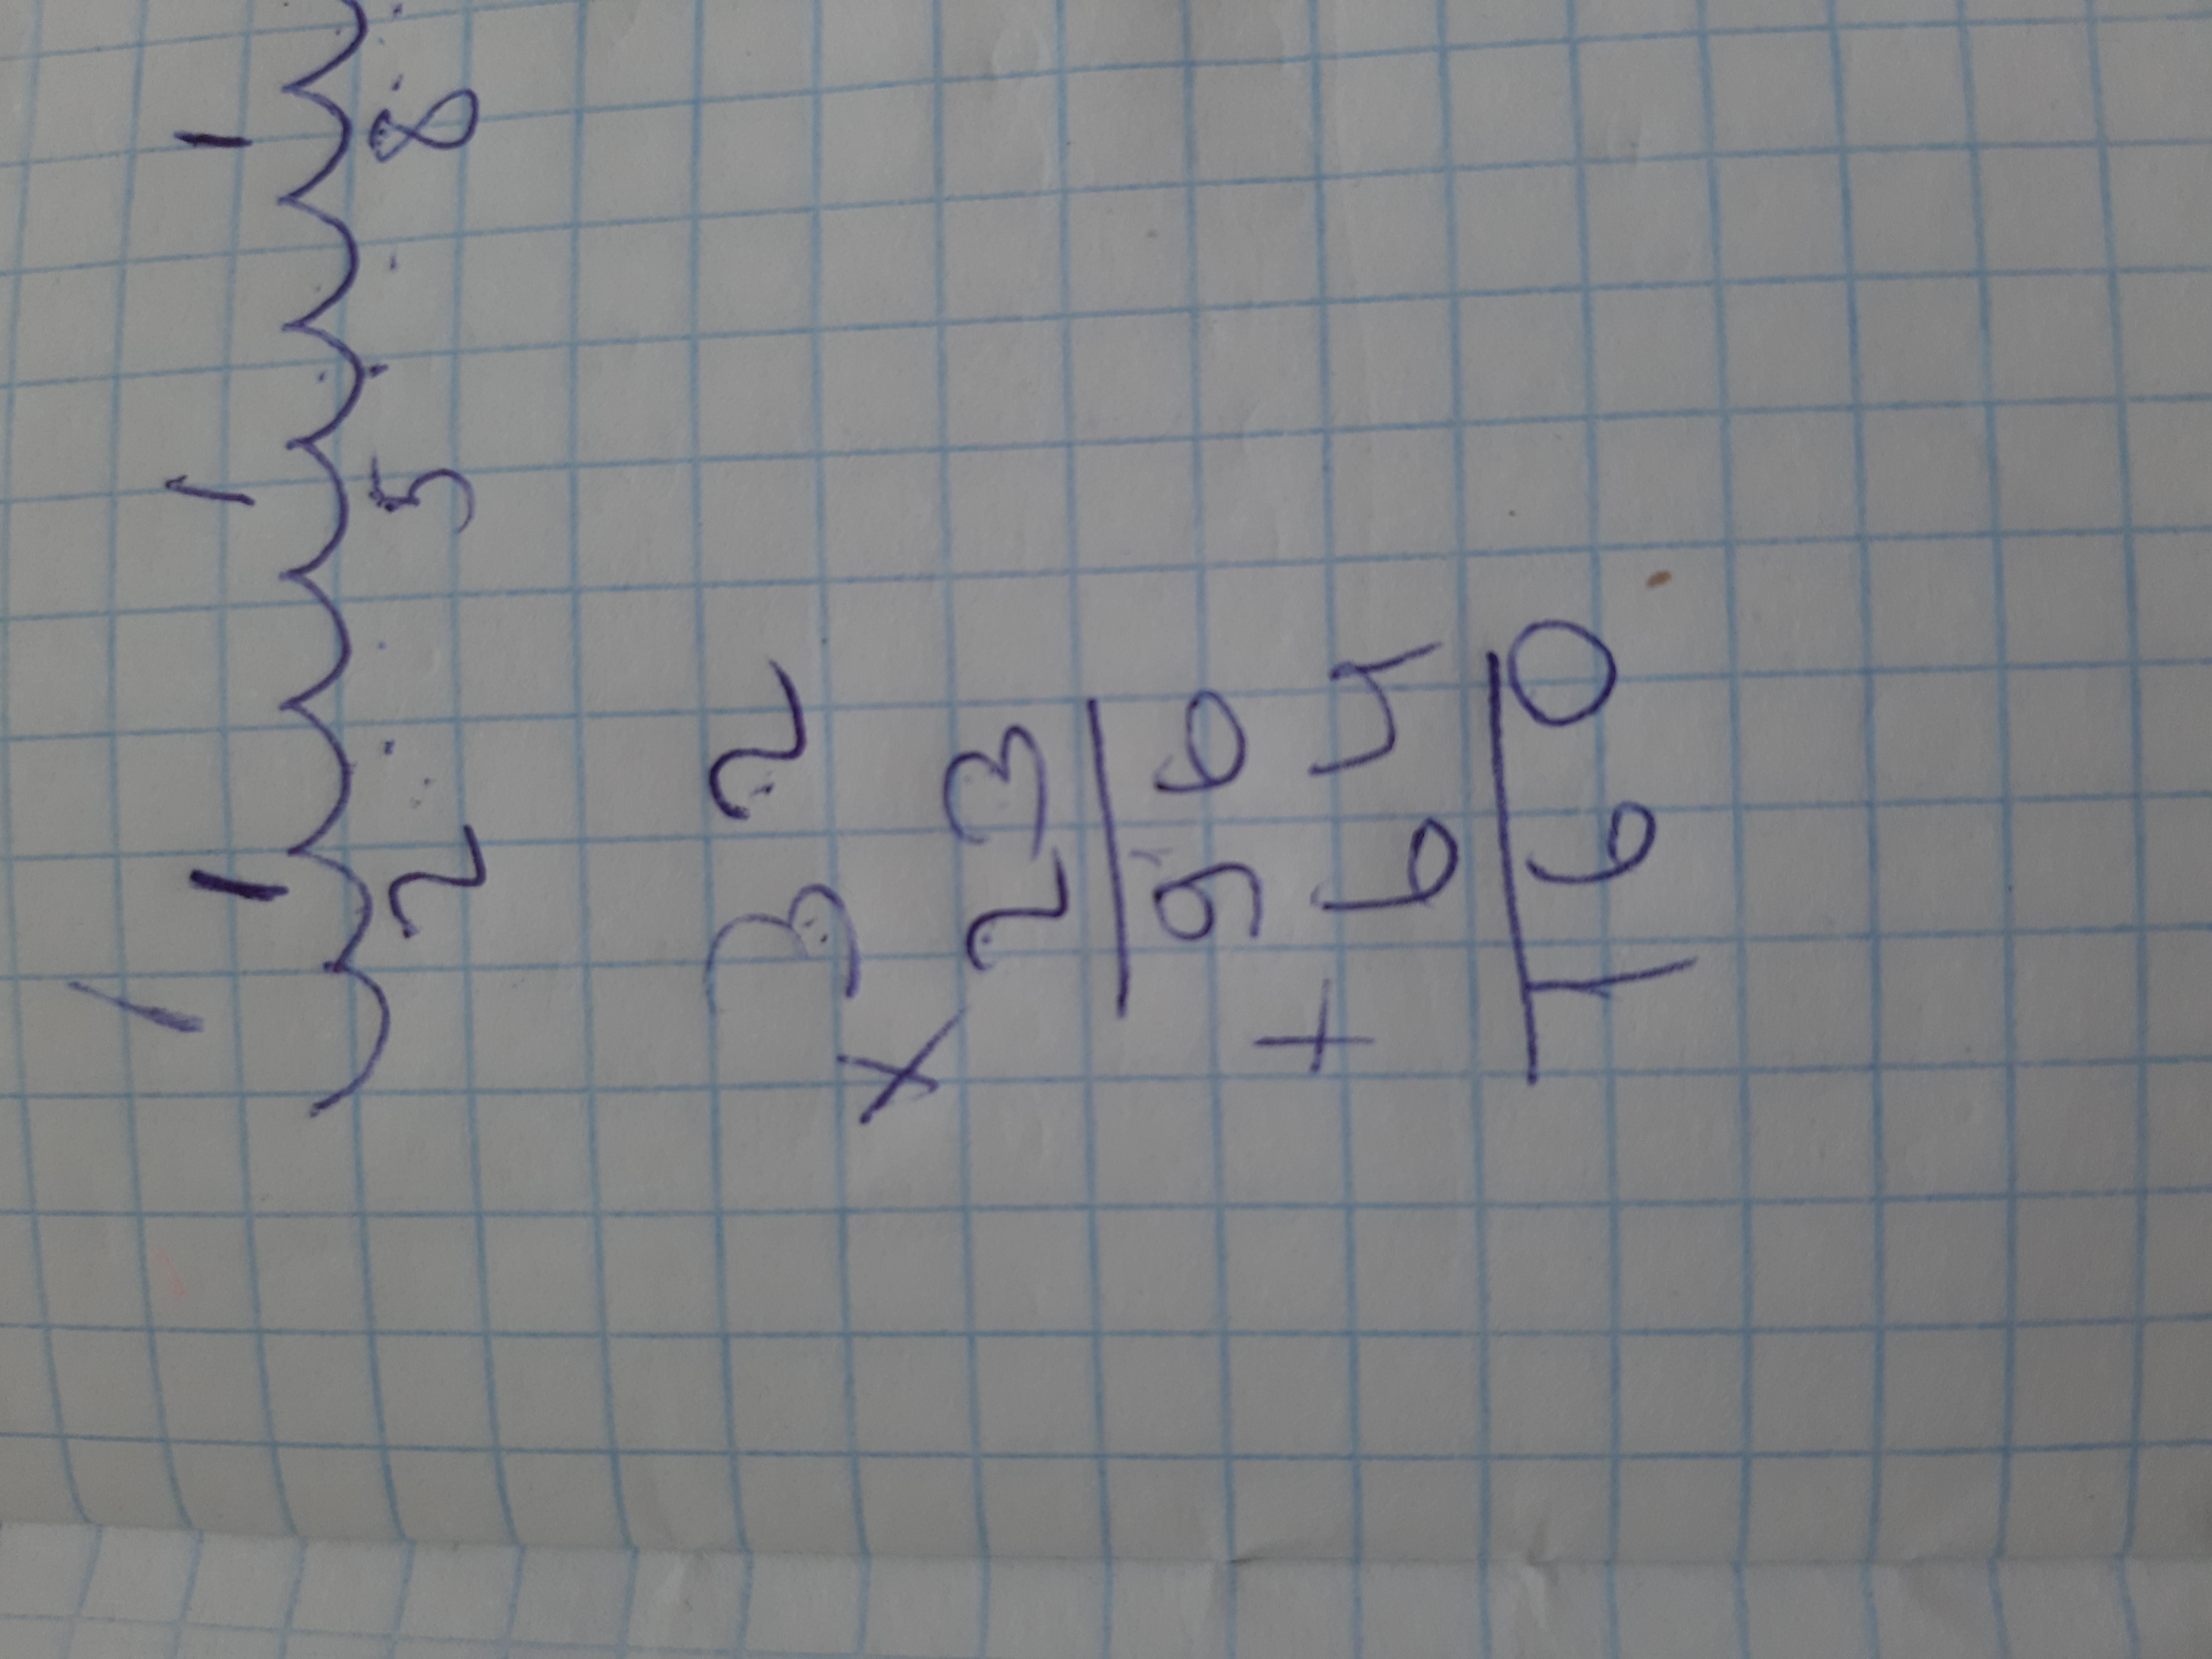 1 1 1 1
2 5 8
3 2
×
23
9 6
+ 6 4
1 6 0